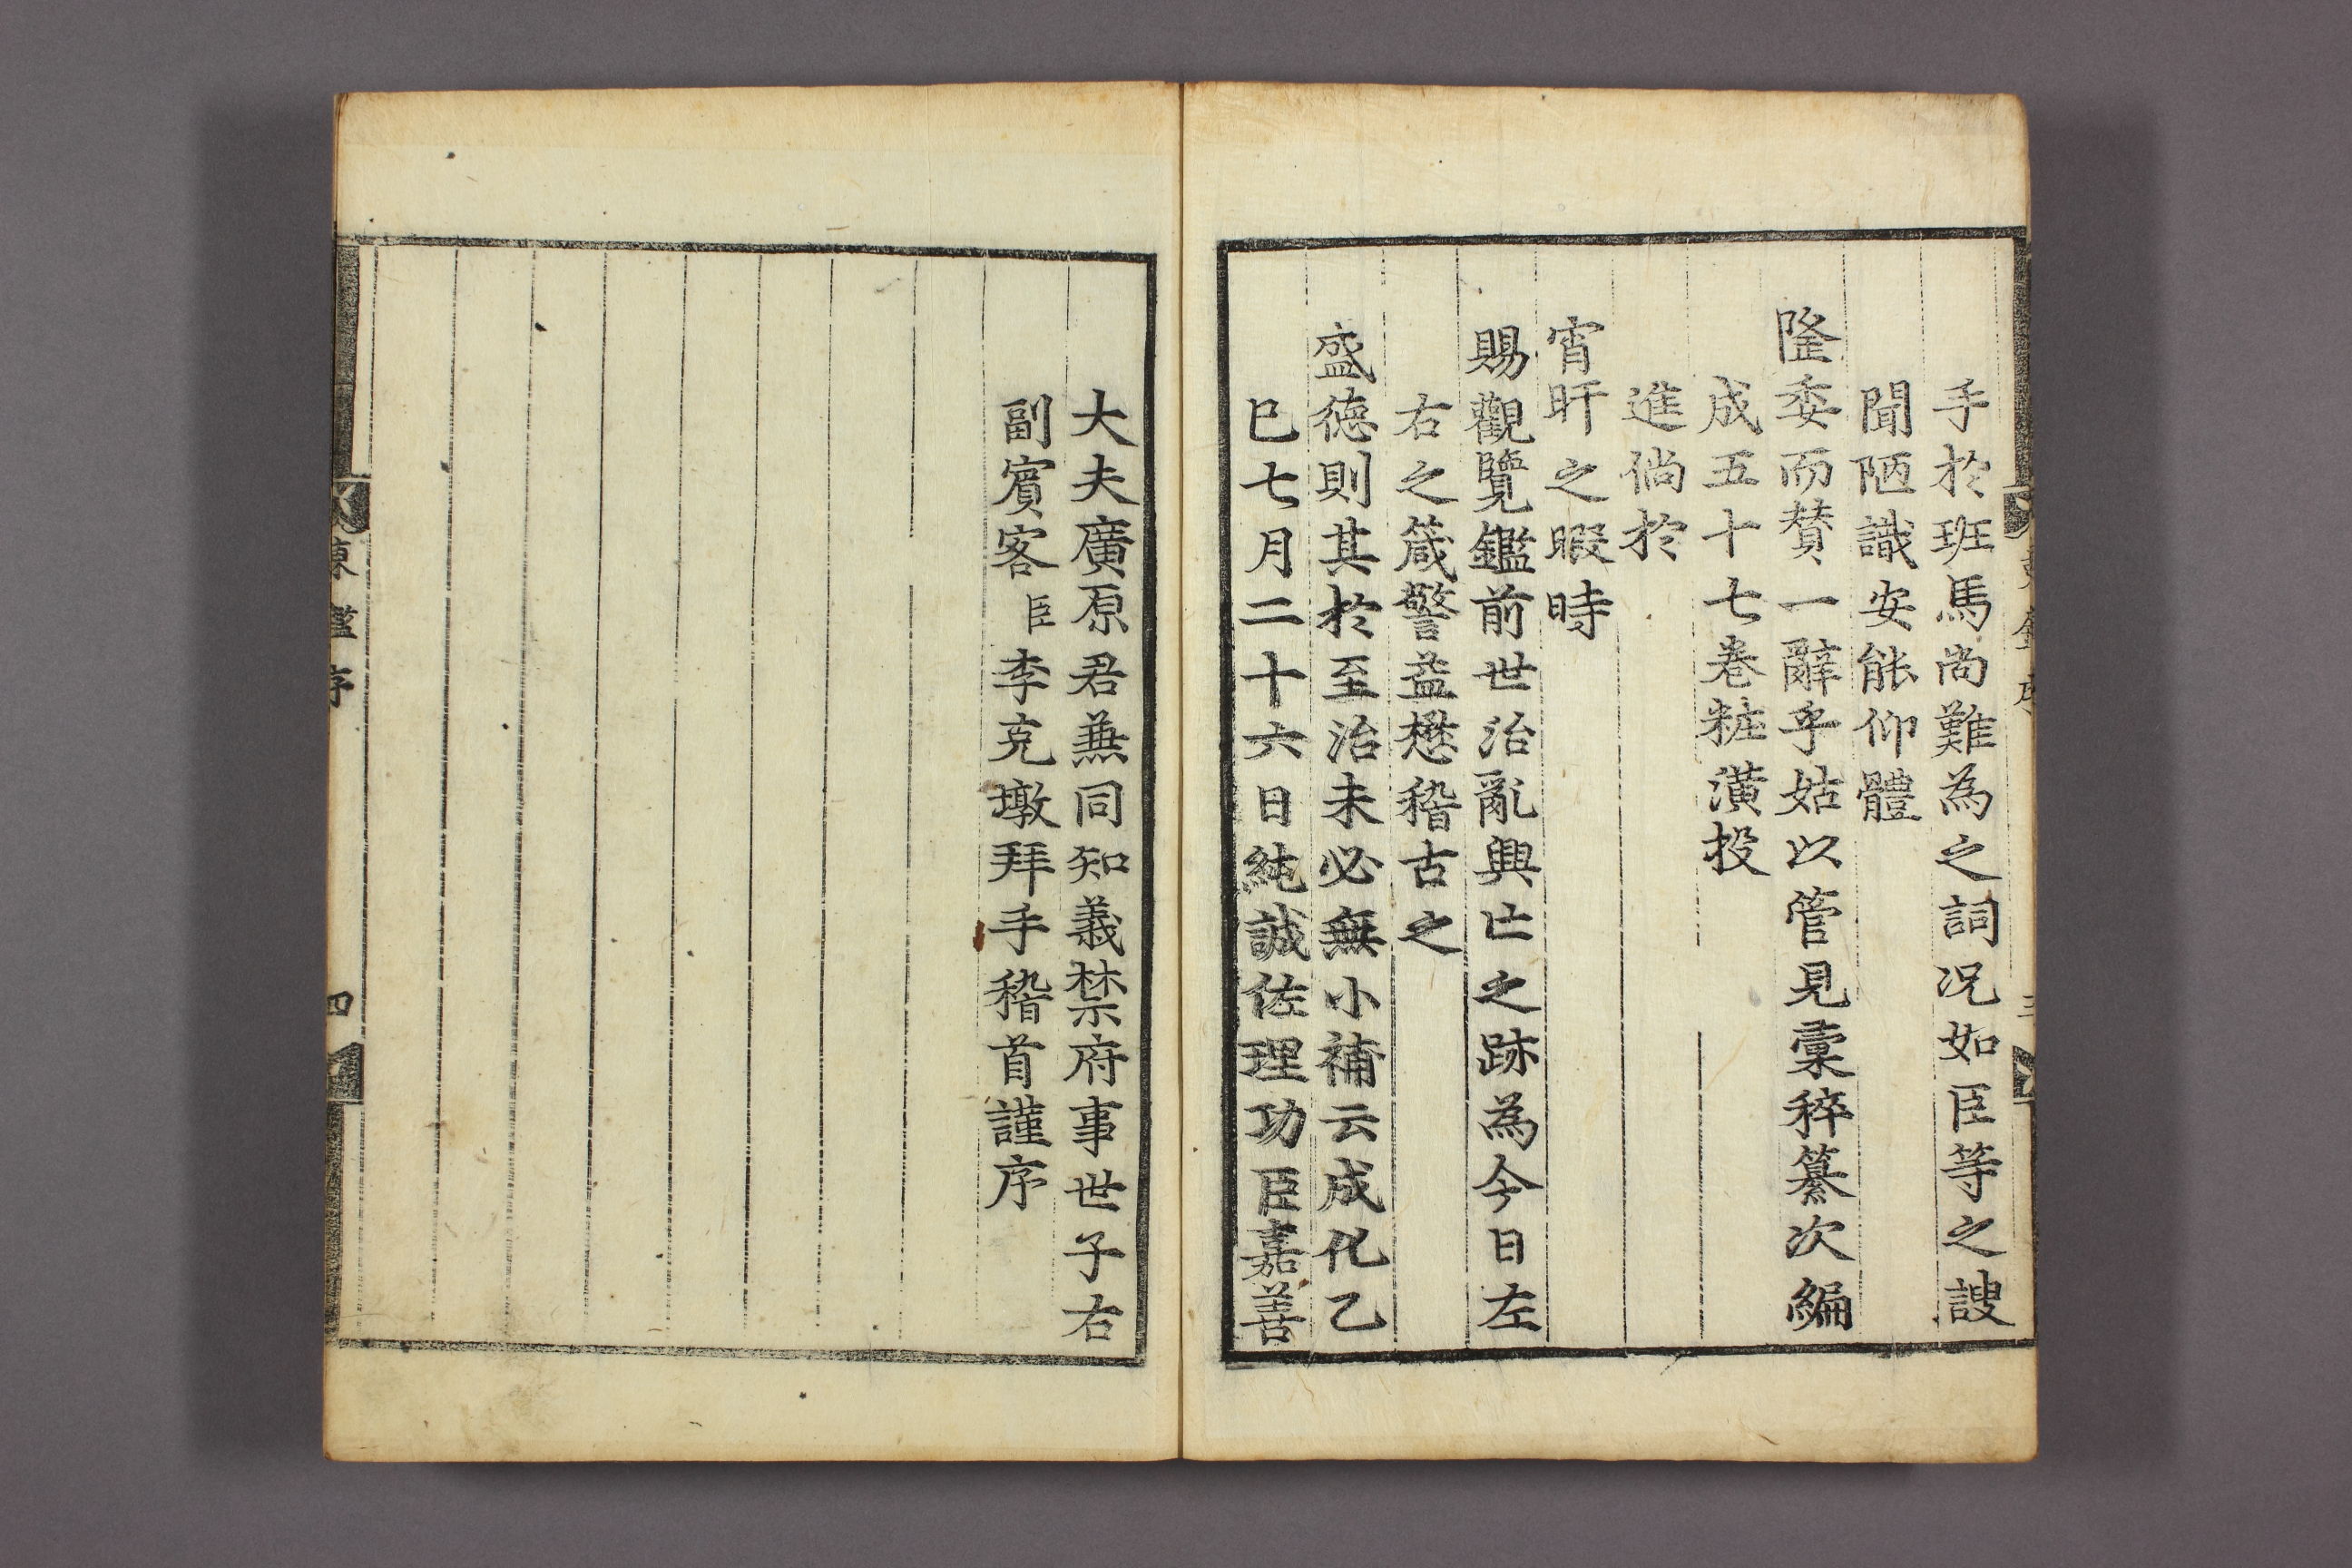 手於班馬尚難為之詞况如臣等之謏
聞陋識安能仰體
隆委而賛一辭乎姑以管見彙稡纂次編
成五十七卷粧潢投
進倘於
宵旰之暇時
賜觀覽鑑前世治亂興亡之跡為今日左
右之箴警益懋稽古之
盛徳則其於至治未必無小補云成化乙
巳七月二十六日純誠佐理功臣嘉善
大夫廣原君兼同知義禁府事世子右
副賓客臣李克墩拜手稽首謹序
東鑑序
四